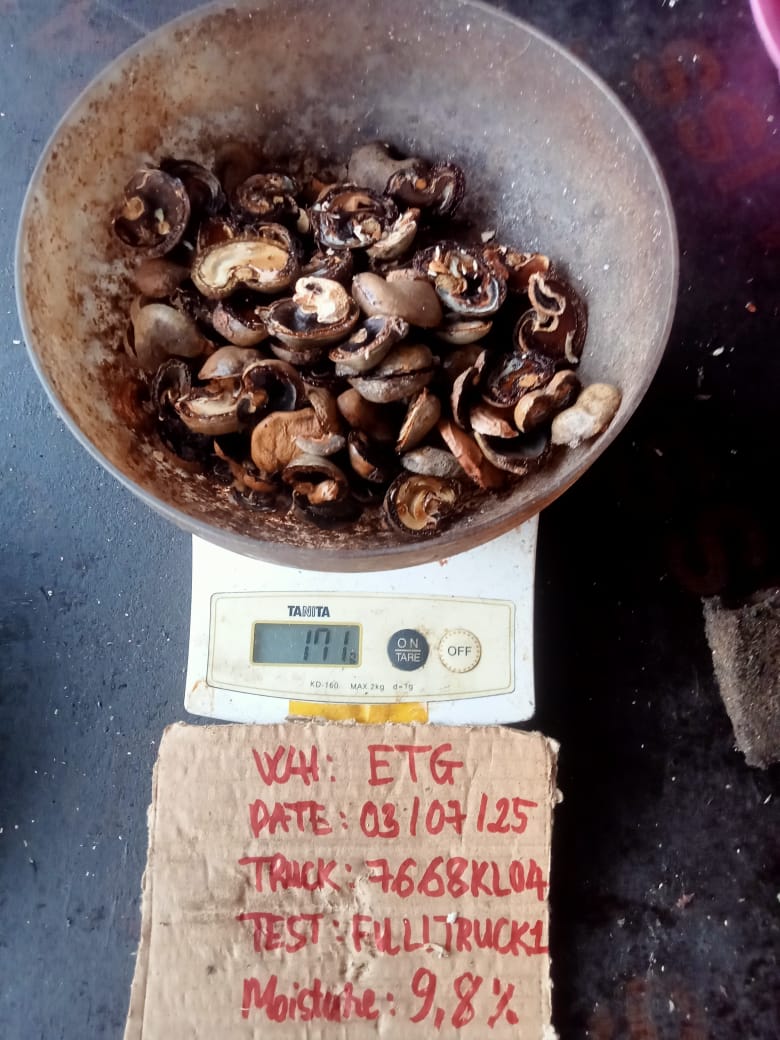 TANITA
171
ON
TARE
OFF
KD-160 MAX 2kg d=1g
W4H: ETG
DATE: 03/07/25
TRUCK: 7668KL04
TEST: FULLTRUCK1
Moisture: 9,8%